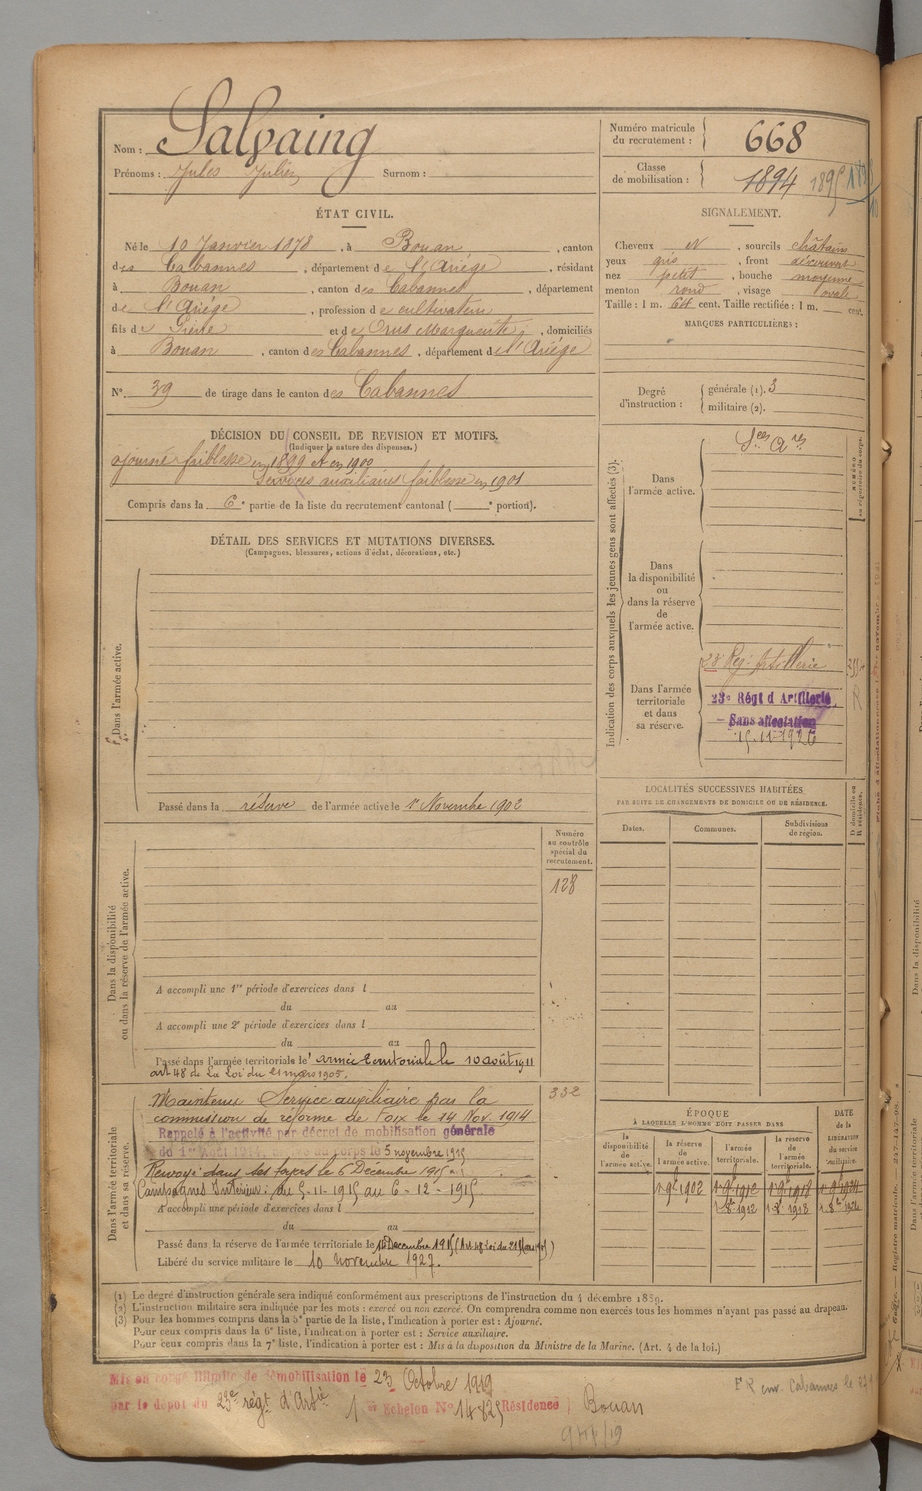 Nom : Salvaing
Prénoms : Jules Julien Surnom :
Numéro matricule du recrutement : 668
Classe de mobilisation : 1894 1895
ÉTAT CIVIL.
Né le 10 Janvier 1878, à Bouan, canton
des Cabannes, département de l'Ariège, résidant
à Bouan, canton des Cabannes, département
de l'Ariège, profession de cultivateur
fils de Pierre et de Orus Marguerite, domiciliés
à Bouan, canton des Cabannes, département de l'Ariège
N° 39 de tirage dans le canton des Cabannes
DÉCISION DU CONSEIL DE REVISION ET MOTIFS.
(Indiquer la nature des dispenses.)
ajourné faiblesse en 1899 et en 1900
Services auxiliaires faiblesse en 1901
Compris dans la 6e partie de la liste du recrutement cantonal ( e portion).
SIGNALEMENT.
Cheveux N, sourcils châtain
yeux gris, front découvert
nez petit, bouche moyenne
menton rond, visage ovale
Taille : 1 m. 64 cent. Taille rectifiée : 1 m. cent.
MARQUES PARTICULIÈRES :
Degré d'instruction : générale (1). 3
militaire (2).
DÉTAIL DES SERVICES ET MUTATIONS DIVERSES.
(Campagnes, blessures, actions d'éclat, décorations, etc.)
Dans l'armée active.
Passé dans la réserve de l'armée active le 1er Novembre 1902
Indication des corps auxquels les jeunes gens sont affectés (3).
Dans l'armée active.
Ses Ares
Dans la disponibilité ou dans la réserve de l'armée active.
Dans l'armée territoriale et dans sa réserve.
23e Reg. Artillerie
23e Régt d'Artillerie
Sans affectation
15-11-1926
LOCALITÉS SUCCESSIVES HABITÉES
PAR SUITE DE CHANGEMENTS DE DOMICILE OU DE RÉSIDENCE.
Dates. Communes. Subdivisions de région.
D domicile ou R résidence.
Dans la disponibilité ou dans la réserve de l'armée active.
Numéro au contrôle spécial du recrutement.
128
A accompli une 1re période d'exercices dans l
du au
A accompli une 2e période d'exercices dans l
du au
Passé dans l'armée territoriale le armée territoriale le 10 août 1911
art 48 de la Loi du 21 mars 1905.
Dans l'armée territoriale et dans sa réserve.
332
Maintenu Service auxiliaire par la
commission de réforme de Foix le 14 Nov. 1914
Rappelé à l'activité par décret de mobilisation générale
du 1er Août 1914, arrivé au corps le 5 novembre 1915
Renvoyé dans ses foyers le 6 Décembre 1915
Campagnes Intérieur. du 5-11-1915 au 6-12-1915.
A accompli une période d'exercices dans l
du au
Passé dans la réserve de l'armée territoriale le
Libéré du service militaire le 10 novembre 1927.
ÉPOQUE
À LAQUELLE L'HOMME DOIT PASSER DANS
la disponibilité de l'armée active.
la réserve de l'armée active.
l'armée territoriale.
la réserve de l'armée territoriale.
DATE de la LIBÉRATION du service militaire.
1 9e 1902 1 9e 1912 1 9e 1918 1 9e 1924
1 8e 1912 1 8e 1918 1 8e 1924
(1) Le degré d'instruction générale sera indiqué conformément aux prescriptions de l'instruction du 4 décembre 1889.
(2) L'instruction militaire sera indiquée par les mots : exercé ou non exercé. On comprendra comme non exercés tous les hommes n'ayant pas passé au drapeau.
(3) Pour les hommes compris dans la 5e partie de la liste, l'indication à porter est : Ajourné.
Pour ceux compris dans la 6e liste, l'indication à porter est : Service auxiliaire.
Pour ceux compris dans la 7e liste, l'indication à porter est : Mis à la disposition du Ministre de la Marine. (Art. 4 de la loi.)
Mis en congé illimité de démobilisation le 23 Octobre 1919
par le dépôt du 23e régt d'Artie 1er Echelon N° 14825 Résidence : Bouan